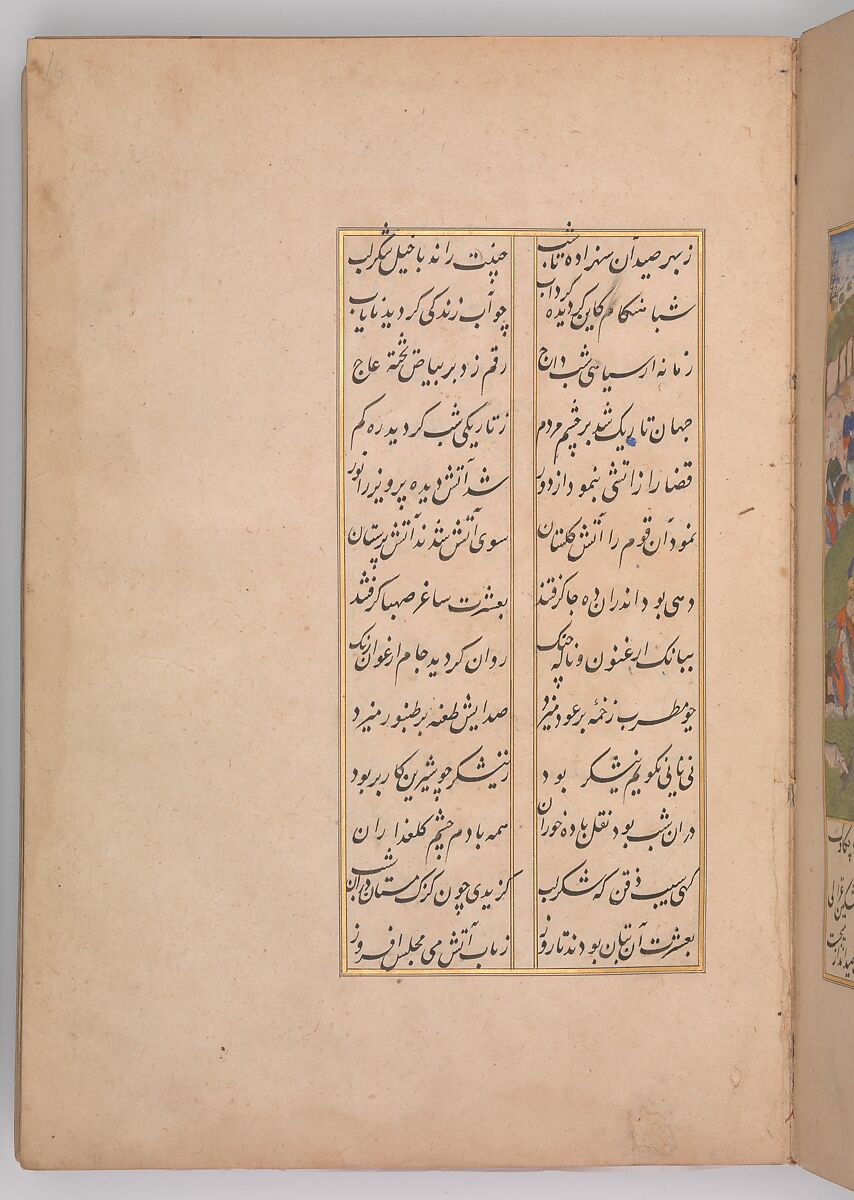 ز بهر صید آن شهزاده تا شب
جنیبت راند با خیل شکرلب
شبا هنکام کاین کردیده کرداب
چو آب زندکی کردید نایاب
زمانه از سیاهی شب داج
رقم زد بر بیاض تختهٔ عاج
جهان تاریک شد بر چشم مردم
ز تاریکی شب کردید ره کم
قضا را ز اتشی بنمود از دور
شد آتش دیده پرویز را نور
نمود آن قوم را آتش کلستان
سوی آتش شدند آتش پرستان
دهی بود اندران ده جا کرفتند
بعشرت ساغر صهبا کرفتند
ببانک ارغنون و ناله چنک
روان کردید جام ارغوان رنک
چو مطرب زخمه بر عود میزد
صدایش طعنه بر طنبور میزد
نی نایی نکویم نیشکر بود
ز نیشکر چو شیرین کار بر بود
دران شب بود نقل باده خوران
همه بادم چشم کلعذاران
کهی سیب ذقن که شکر لب
کزیدی چون کزک مستان دران شب
بعشرت آن بتان بودند تا روز
ز تاب آتش می مجلس افروز